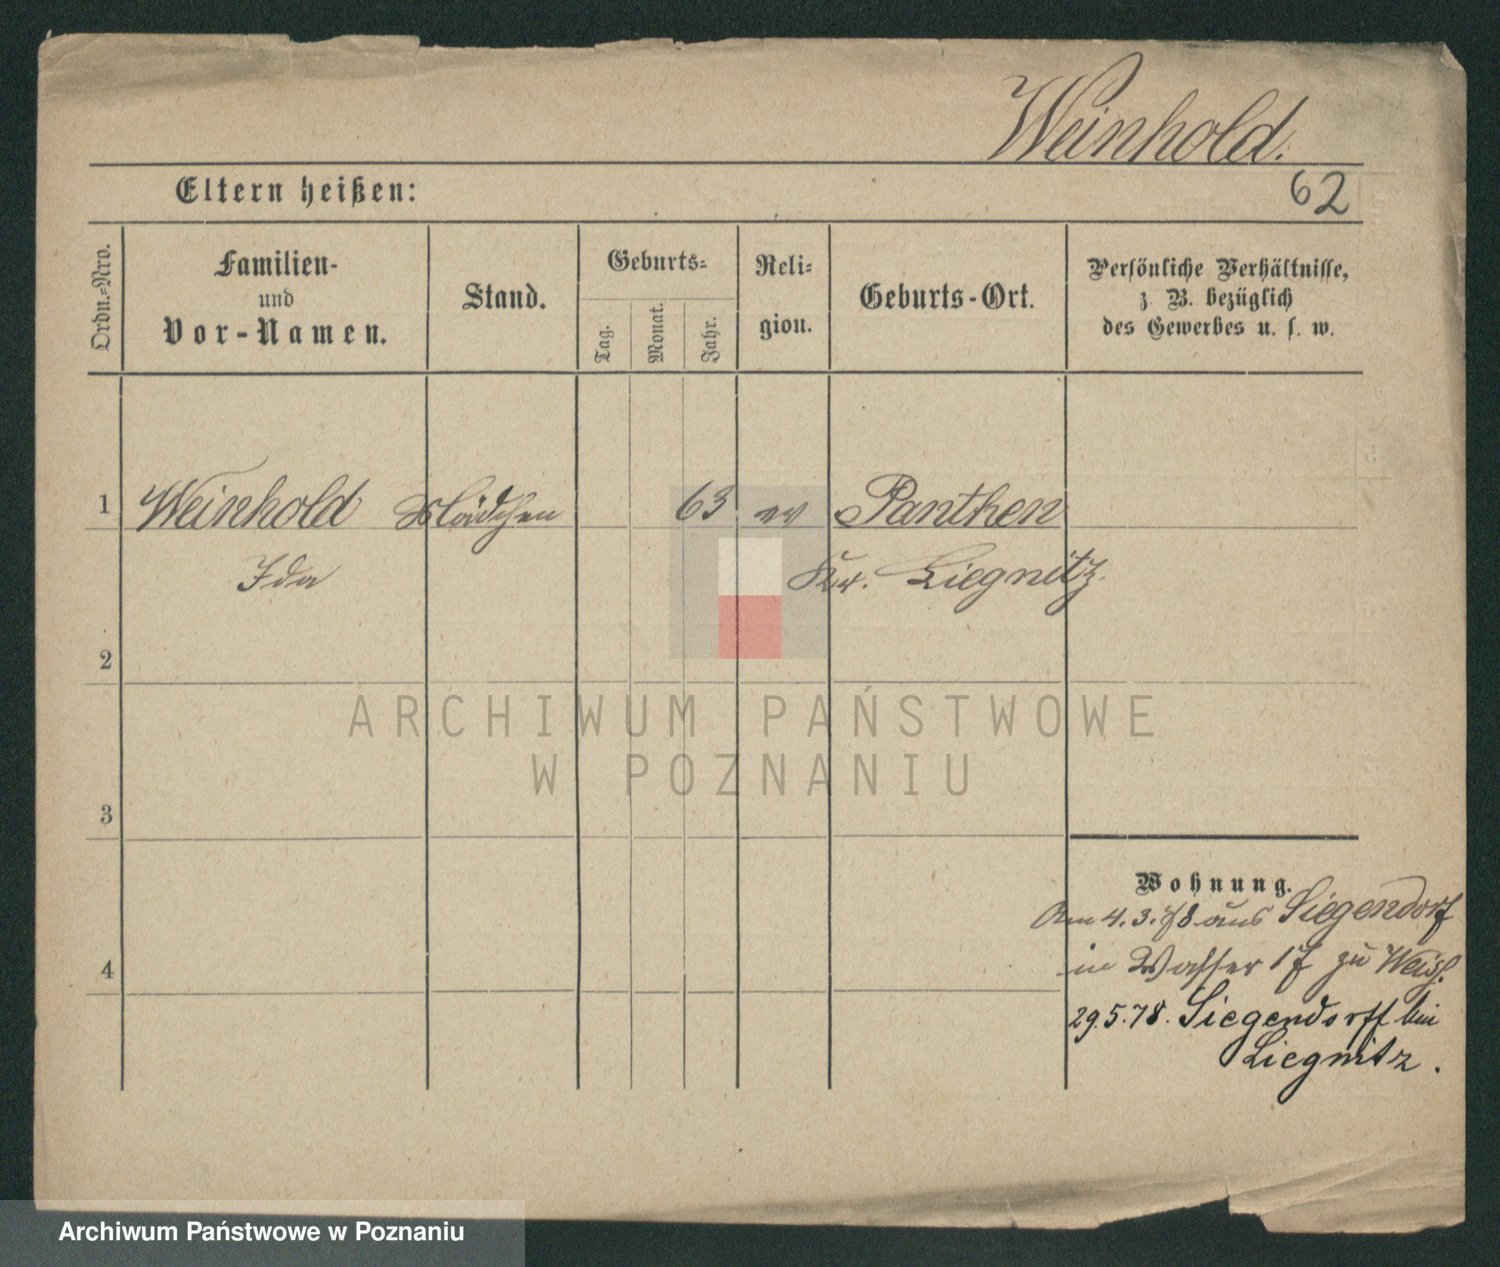 Weinhold.
Eltern heißen:
62
Ordn.-Nro.
Familien-
und
Vor-Namen.
Stand.
Geburts-
Tag.
Monat.
Jahr.
Reli-
gion.
Geburts-Ort.
Persönliche Verhältnisse,
z. B. bezüglich
des Gewerbes u. s. w.
1 Weinhold Mädchen 63 ev Panthen
Ida Kr. Liegnitz.
2
ARCHIWUM PAŃSTWOWE
W POZNANIU
3
Wohnung.
Am 4.3.78 aus Siegendorf
4
in Wasser 17 zu
29.5.78. Siegendorff bei
Liegnitz.
Archiwum Państwowe w Poznaniu